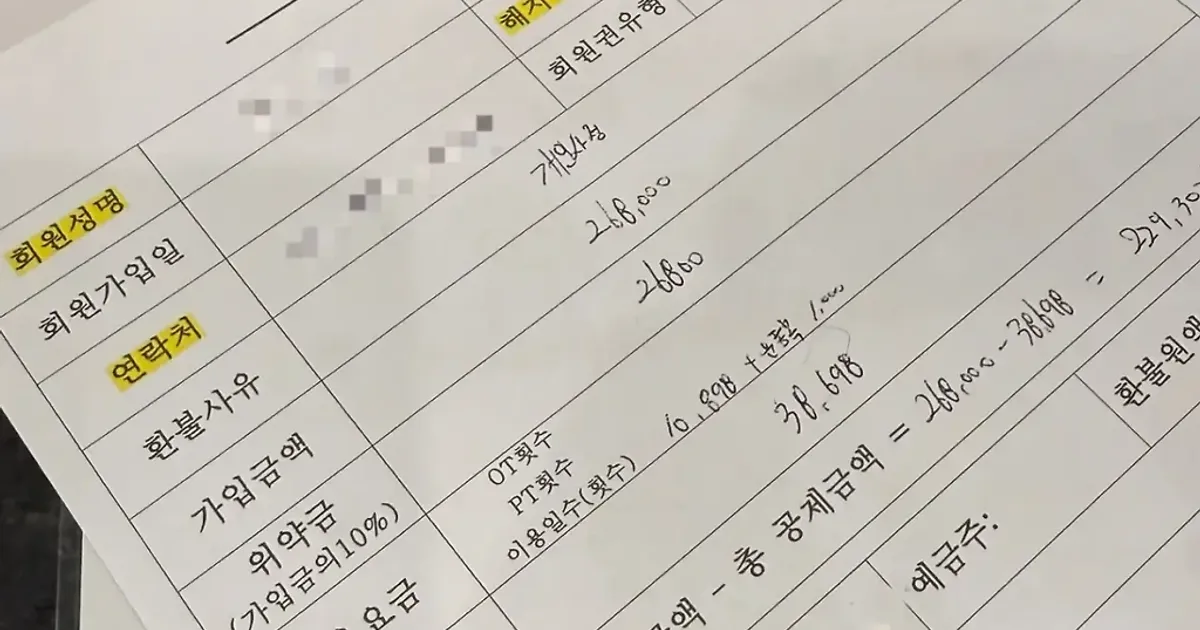 해지
회원권유형
회원성명
회원가입일
연락처
환불사유 개인사정
가입금액 268,000
위약금
(가입금의10%) 26800
요금
OT횟수
PT횟수
이용일수(횟수) 10,898 + 1,000
38,698
금액 - 총 공제금액 = 268,000 - 38,698 = 229,30
환불원액
예금주: